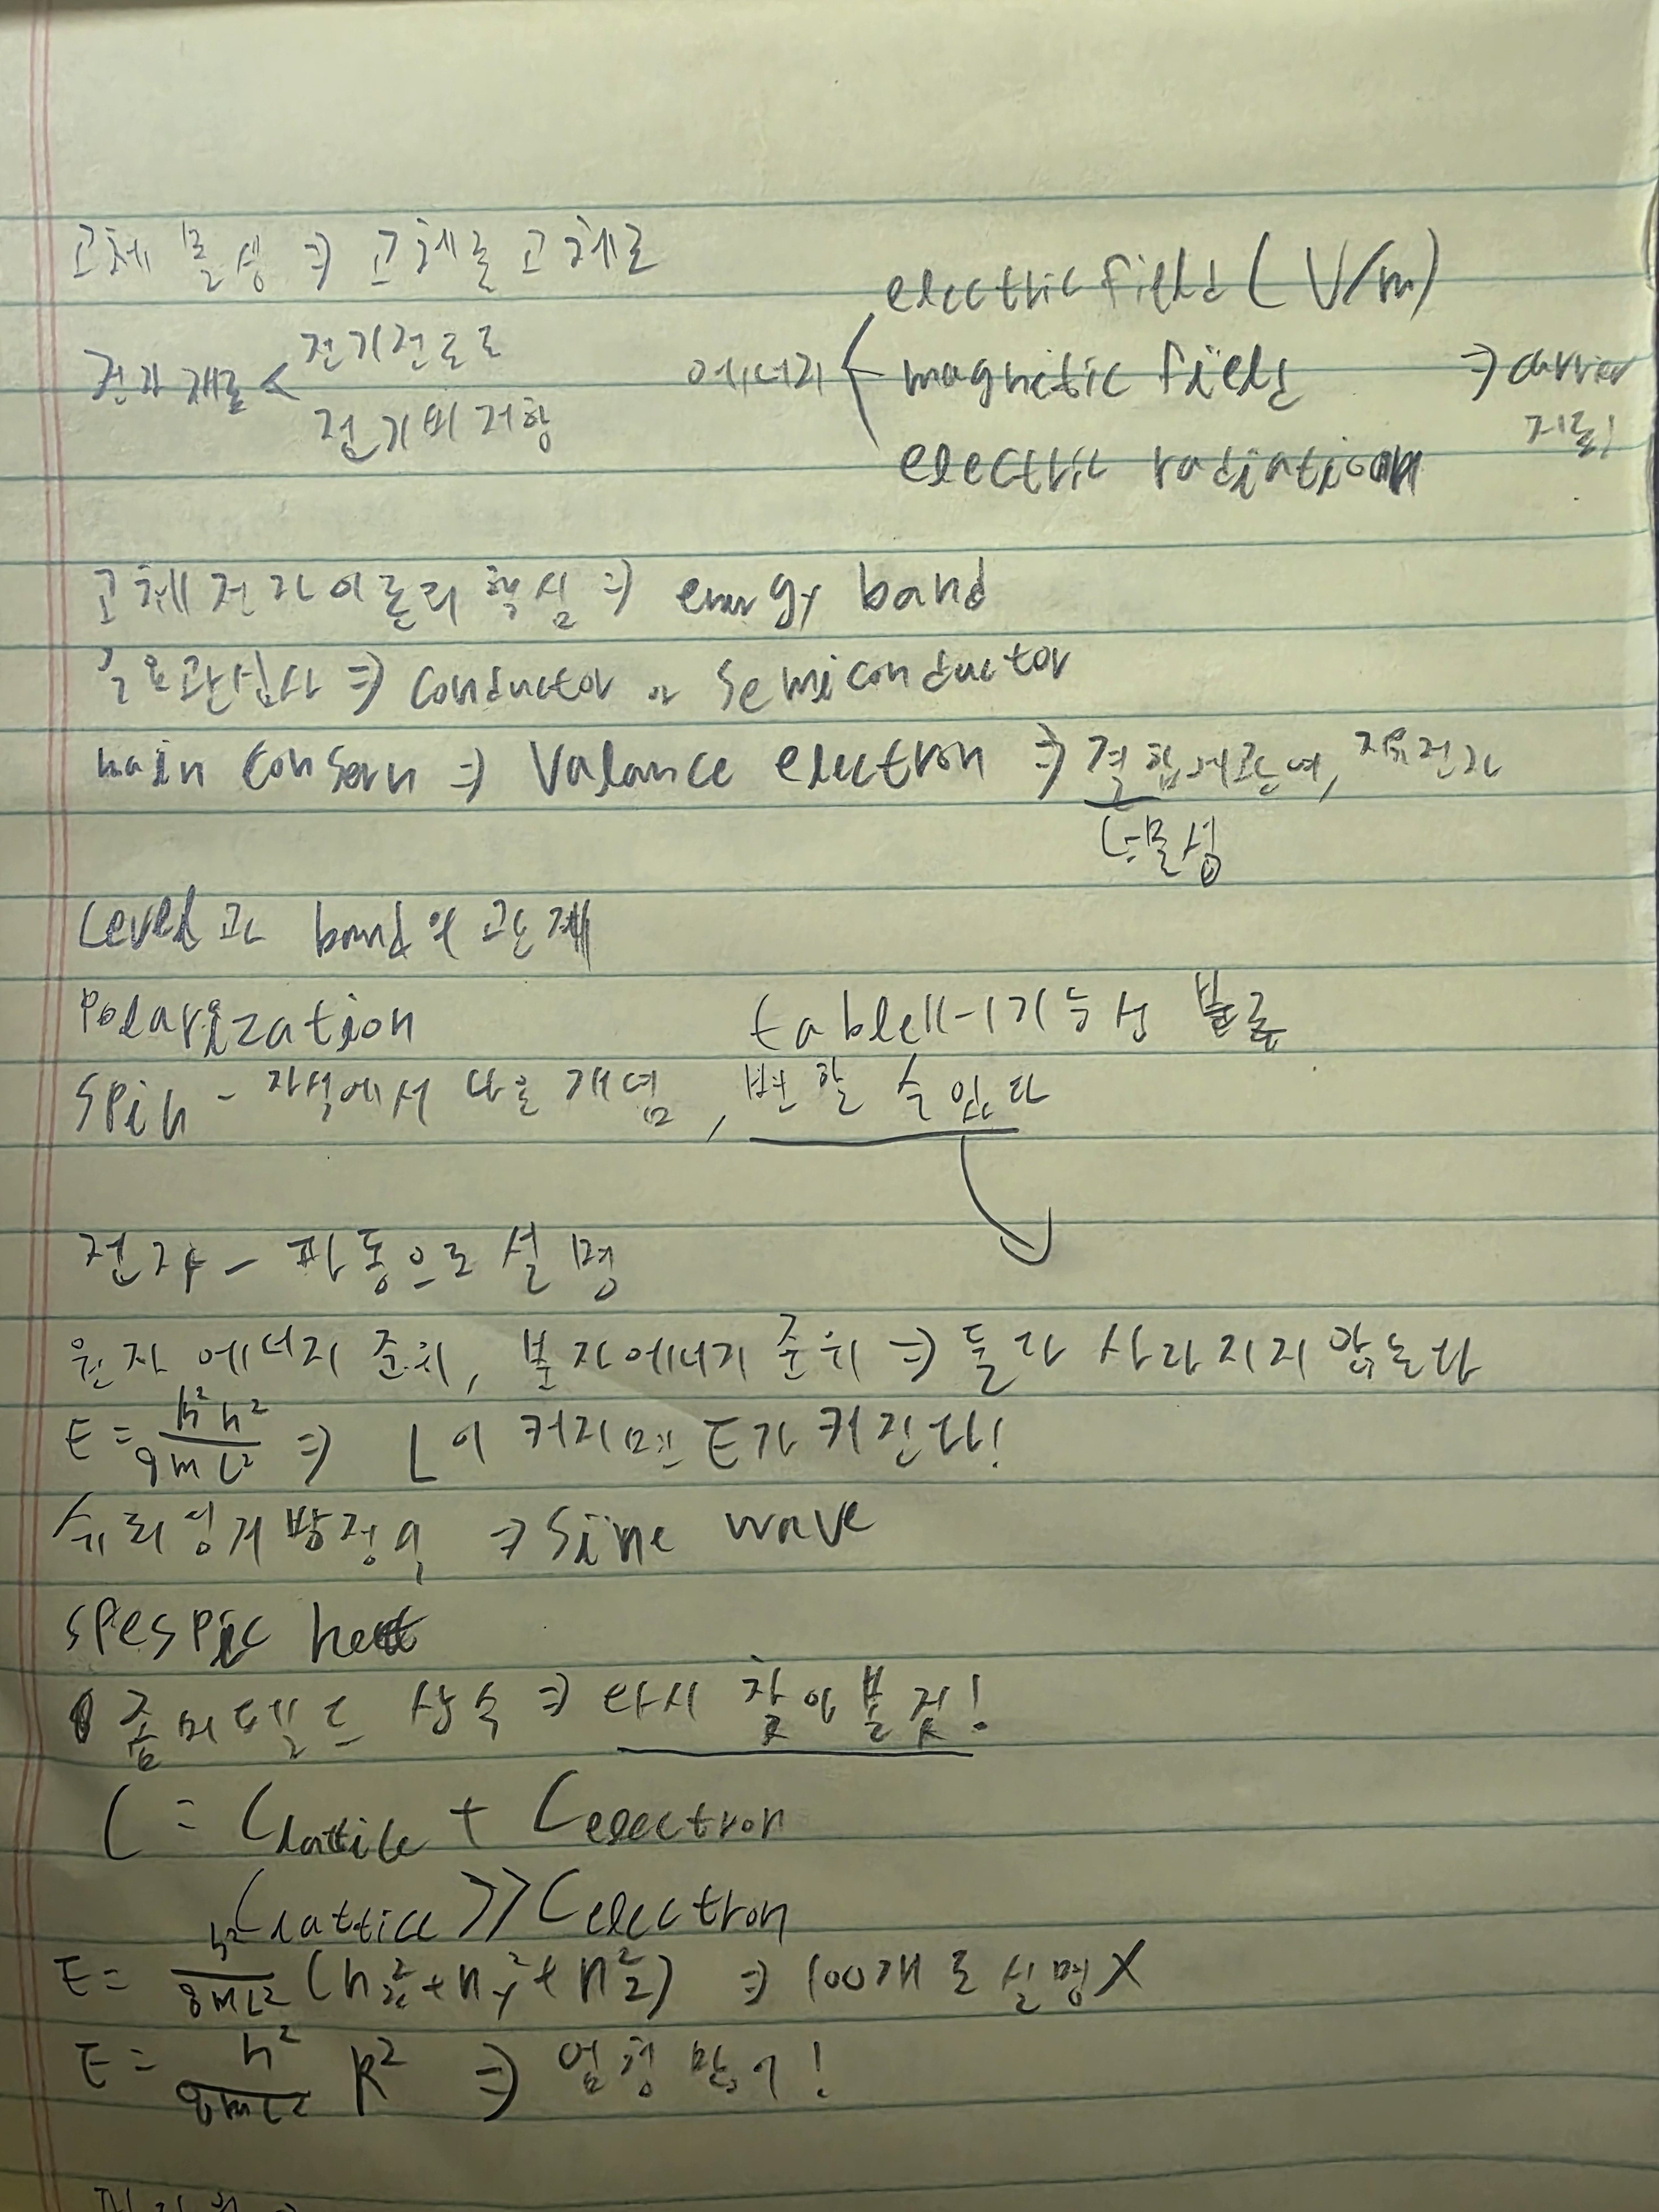 고체 물성 ⇒ 고체를 고체로
전자 재료 < 전기전도도
전기비저항
에너지 < electric field (V/m)
magnetic field ⇒ carrier
electric radiation
고체전자이론의 핵심 ⇒ energy band
주요관심사 ⇒ conductor or semiconductor
main consern ⇒ Valance electron ⇒ 결합에관여, 자유전자
↳물성
Level과 band의 관계
Polarization
table11-1 가능성
spin - 자석에서 나온 개념, 변할 수 있다
전자 - 파동으로 설명
원자 에너지 준위, 분자에너지 준위 ⇒ 둘다 사라지지 않는다
E = h²n²/8mL² ⇒ L이 커지면 E가 커진다!
슈뢰딩거방정식 ⇒ Sine wave
spespic heat
좀머펠트 상수 ⇒ 다시 찾아볼것!
C = Clattice + Celectron
Clattice >> Celectron
E = h²/8mL² (nx²+ny²+nz²) ⇒ 100개로 설명X
E = h²/8mL² R² ⇒ 엄청 많이!